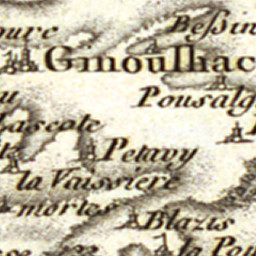 Beßin
oure
Ginoulhac
Pousalg
u
Lascole
Petavy
la Vaissiere
mortes
Blazis
la Pou